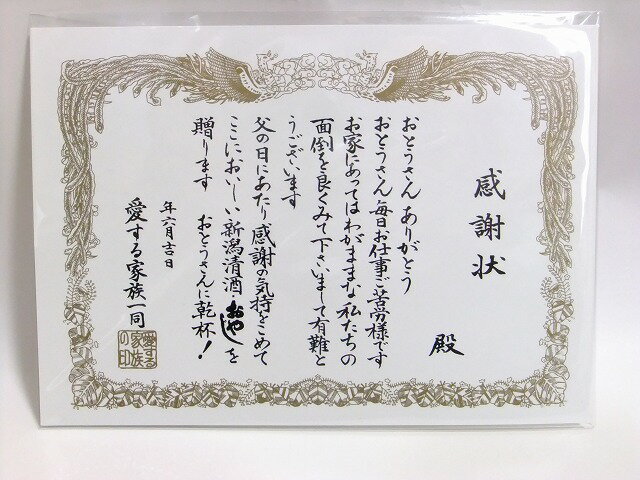 感謝状
殿
おとうさんありがとう
おとうさん毎日お仕事ご苦労様です
お家にあってはわがままな私たちの
面倒を良くみて下さいまして有難と
うございます
父の日にあたり感謝の気持をこめて
ここにおいしい新潟清酒おやじを
贈ります おとうさんに乾杯!
年六月吉日
愛する家族一同
愛する
家族
の印